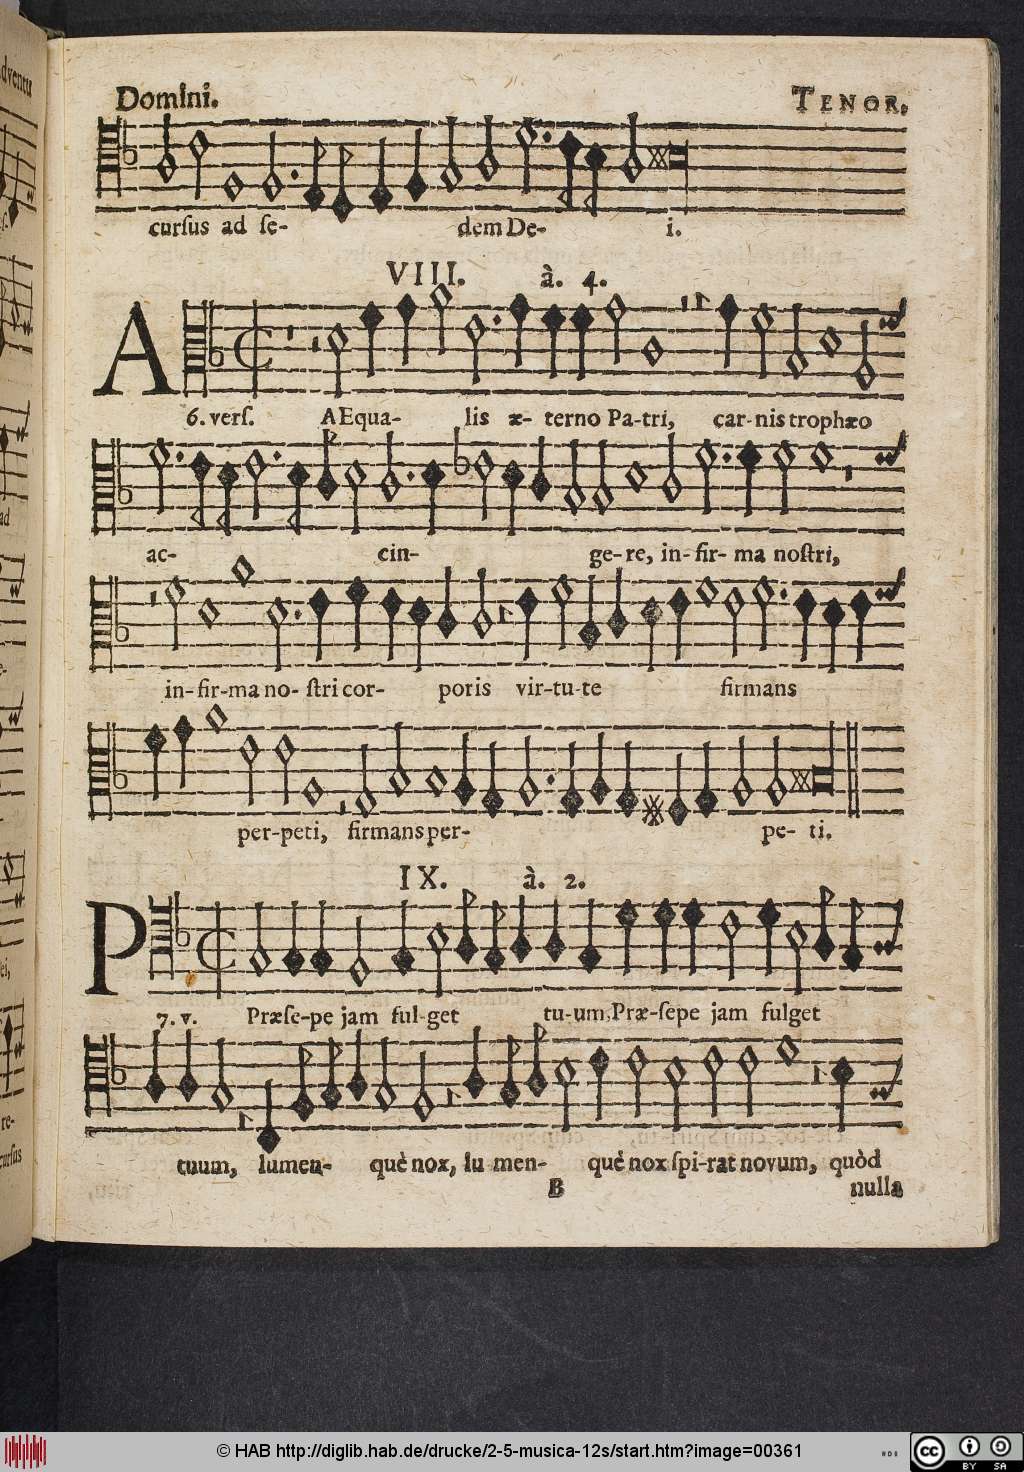 Domini.
TENOR.
curſus ad ſe- dem De- i.
VIII. à. 4.
A
6. verſ. AEqua- lis æ- terno Pa-tri, car-nis trophæo
ac- cin- ge-re, in-fir-ma noſtri,
in-fir-ma no-ſtri cor- poris vir-tu-te firmans
per-peti, firmans per- pe- ti.
IX. à. 2.
P
7. v. Præſe-pe jam ful-get tu-um, Præ-ſepe jam fulget
tuum, lumen- què nox, lu men- què nox ſpi-rat novum, quòd
B nulla
© HAB http://diglib.hab.de/drucke/2-5-musica-12s/start.htm?image=00361
cc BY SA